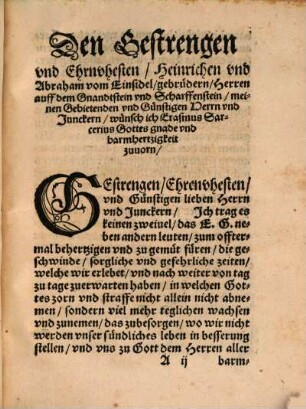 Den Gestrengen
vnd Ehrnvhesten / Heinrichen vnd
Abraham vom Einsidel / gebrüdern / Herren
auff dem Gnandtstein vnd Scharffenstein / mei-
nen Gebietenden vnd Günstigen Herrn vnd
Junckern / wünsch ich Erasmus Sar-
cerius Gottes gnade vnd
barmhertzigkeit
zuuorn /
GEstrengen / Ehrenvhesten /
vnd Günstigen lieben Herrn
vnd Junckern / Ich trag es
keinen zweiuel / das E. G. ne-
ben andern leuten / zum offter-
mal behertzigen vnd zu gemüt füren / die ge-
schwinde / sorgliche vnd gefehrliche zeiten /
welche wir erlebet / vnd nach weiter von tag
zu tage zuerwarten haben / in welchen Got-
tes zorn vnd straffe nicht allein nicht abne-
men / sondern viel mehr teglichen wachsen
vnd zunemen / das zubesorgen / wo wir nicht
werden vnser sündliches leben in besserung
stellen / vnd vns zu Gott dem Herren aller
A ij barm-